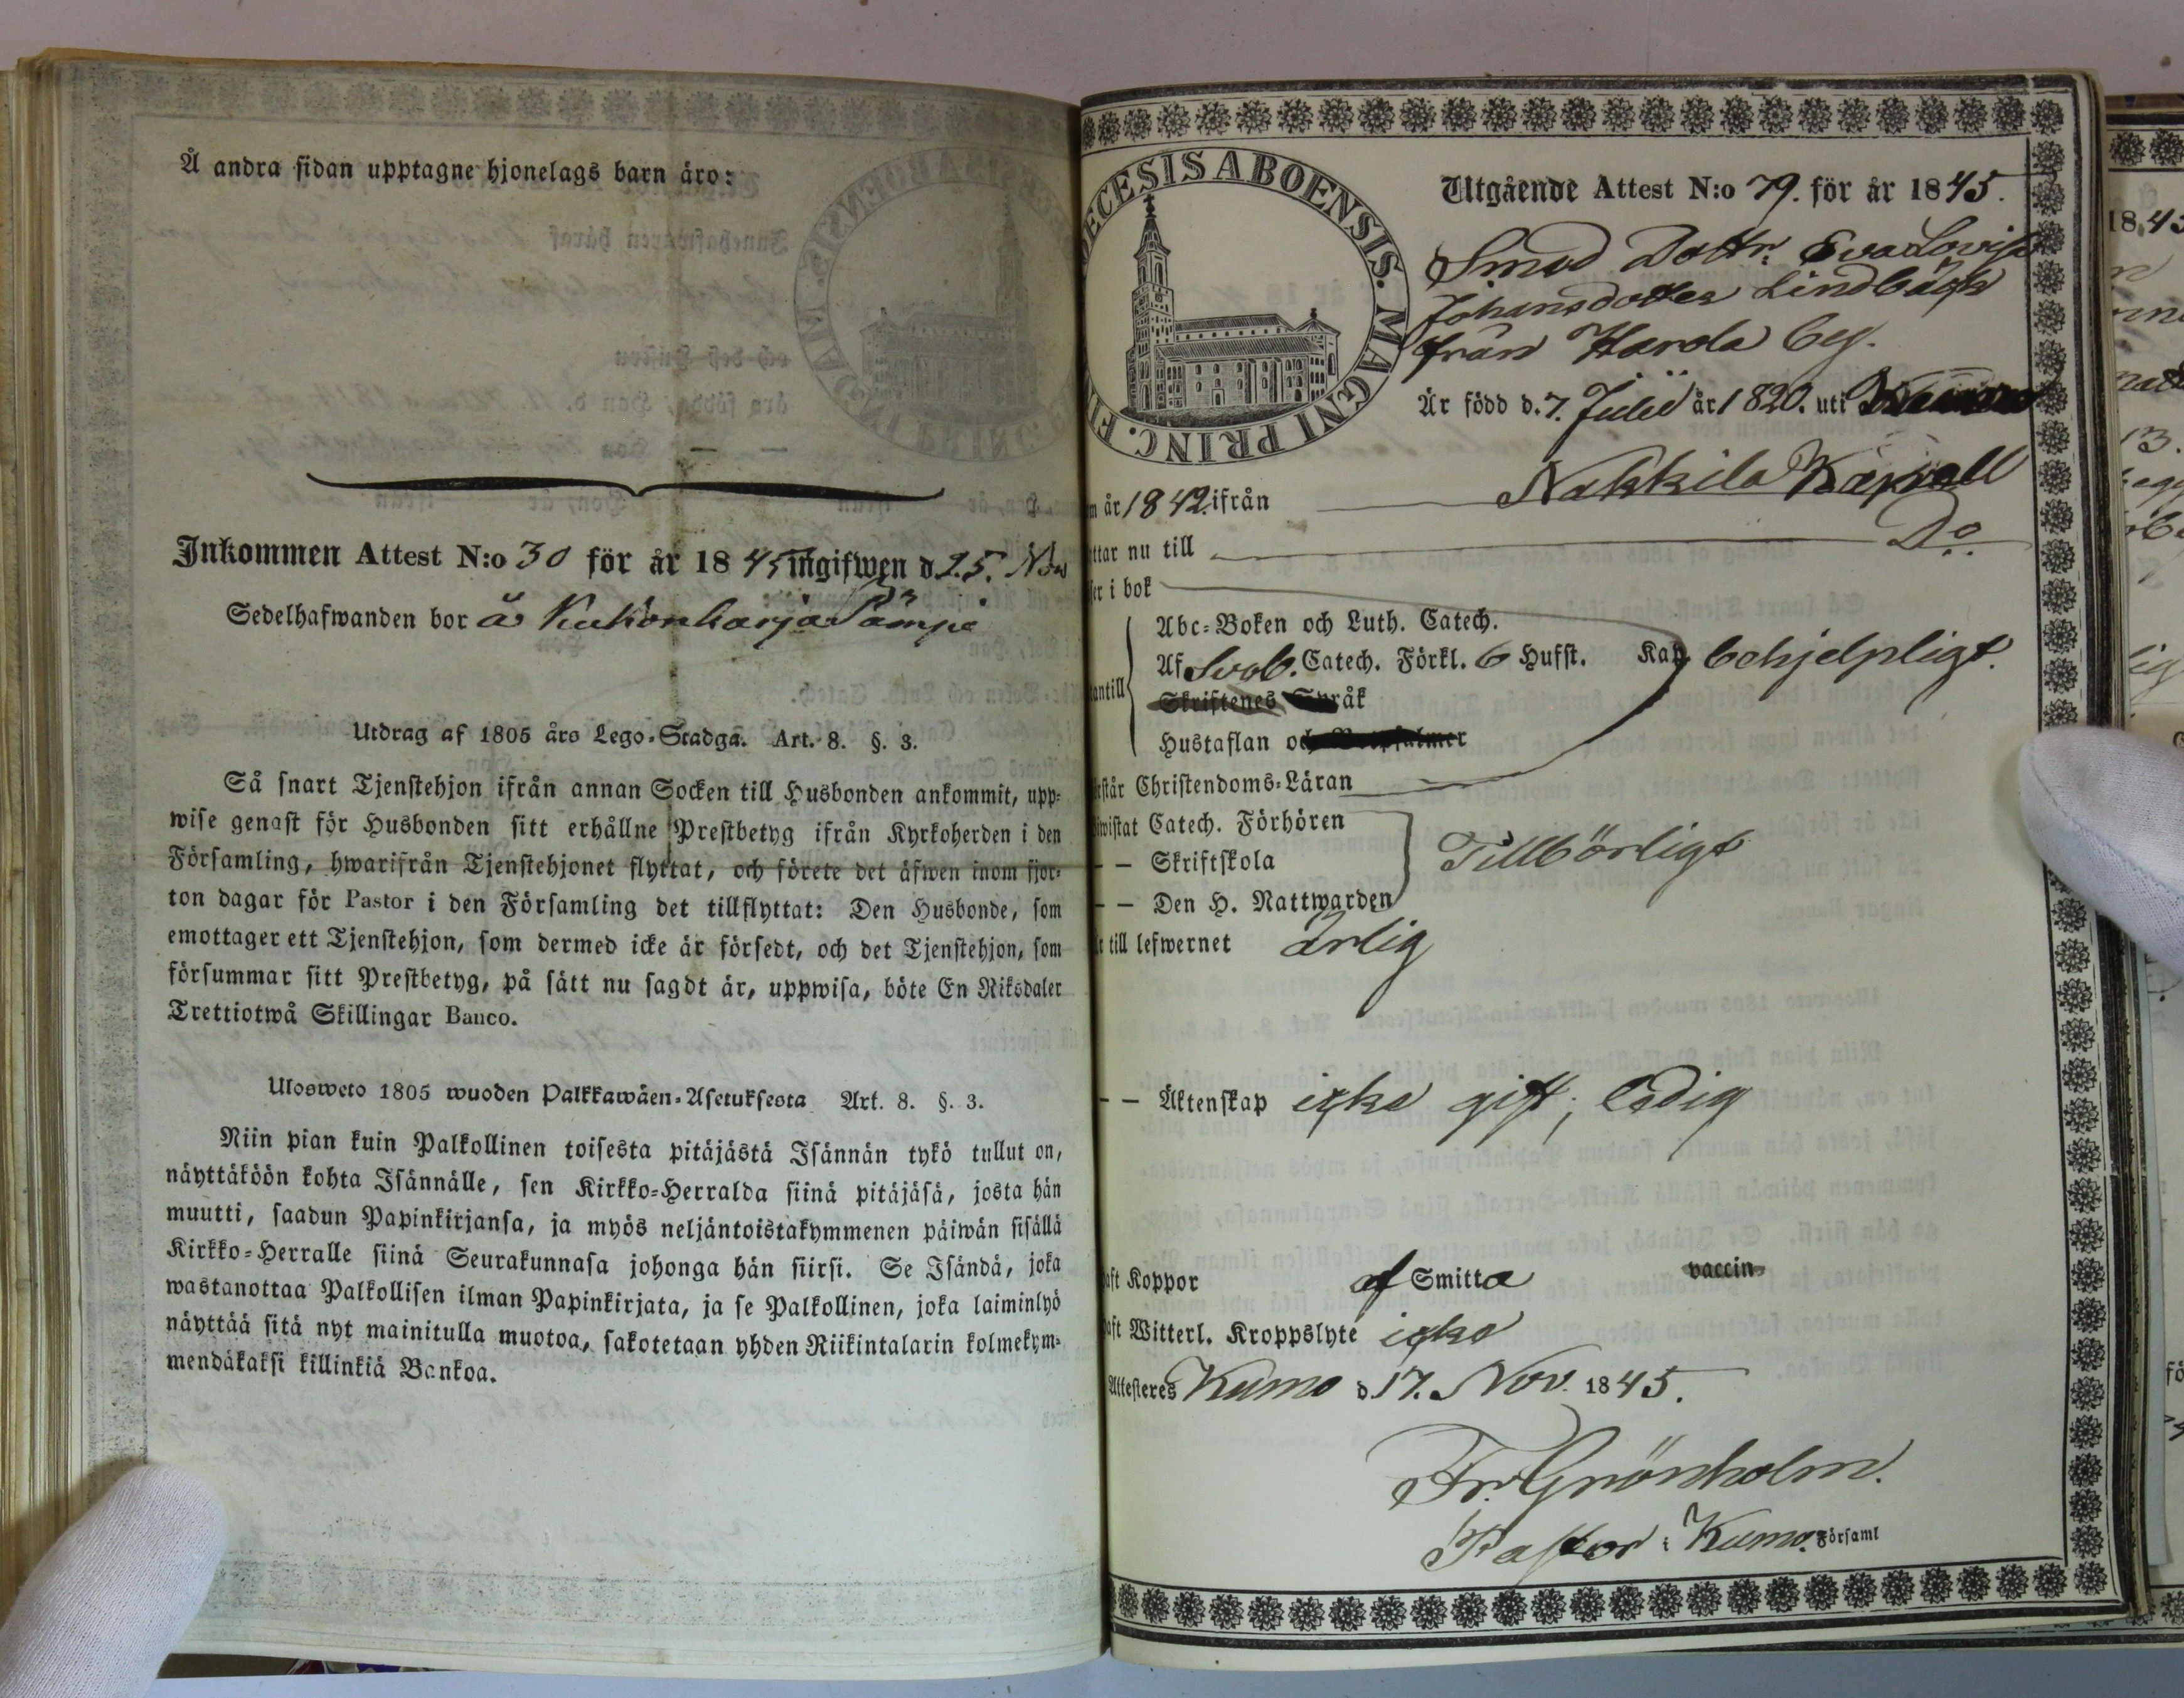 Å andra sidan upptagne hjonelags barn äro:
Inkommen Attest N:o 30 för år 1845 ingifwen d. 25. Nov
Sedelhafwanden bor å
Utdrag af 1805 års Lego-Stadga. Art. 8. §. 3.
Så snart Tjenstehjon ifrån annan Socken till Husbonden ankommit, upp-
wise genast för Husbonden sitt erhållne Prestbetyg ifrån Kyrkoherden i den
Församling, hwarifrån Tjenstehjonet flyttat, och förete det äfwen inom fjor-
ton dagar för Pastor i den Församling det tillflyttat: Den Husbonde, som
emottager ett Tjenstehjon, som dermed icke är försedt, och det Tjenstehjon, som
försummar sitt Prestbetyg, på sätt nu sagdt är, uppwisa, böte En Riksdaler
Trettiotwå Skillingar Banco.
Ulosweto 1805 wuoden Palkkawäen-Asetuksesta Art. 8. §. 3.
Niin pian kuin Palkollinen toisesta pitäjästä Isännän tykö tullut on,
näyttäköön kohta Isännälle, sen Kirkko-Herralda siinä pitäjäsä, josta hän
muutti, saadun Papinkirjansa, ja myös neljäntoistakymmenen päiwän sisällä
Kirkko-Herralle siinä Seurakunnasa johonga hän siirsi. Se Isändä, joka
wastanottaa Palkollisen ilman Papinkirjata, ja se Palkollinen, joka laiminlyö
näyttää sitä nyt mainitulla muotoa, sakotetaan yhden Riikintalarin kolmekym-
mendäkaksi killinkiä Bankoa.
DECESIS ABOENSIS. MAGNI PRINC. FI
Utgående Attest N:o 79. för år 1845.
Smed Dottr: Eva Lovisa
Johansdotter Lindbäck
från Harola by.
Är född d. 7. Julii år 1820. uti
m år 1842. ifrån Nakkila Kapell
ttar nu till Do.
ser i bok
Abc-Boken och Luth. Catech.
antill Af Sveb. Catech. Förkl. 6 Hufst. Kap. behjelpligt.
Skriftenes Språk
Hustaflan och Botpsalmer
rstår Christendoms-Läran
iwistat Catech. Förhören
— — Skriftskola Tillbörligt
— — Den H. Nattwarden
till lefwernet ärlig
— — Äktenskap icke gift; ledig
aft Koppor af Smitta vaccin
aft Witterl. Kroppslyte icke
Attesteres Kumo d. 17. Nov. 1845.
Fr. Grönholm.
Pastor i Kumo. Församl